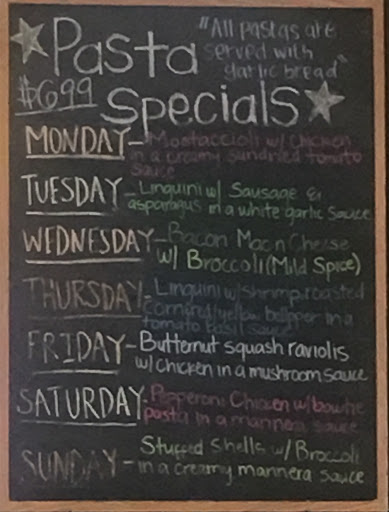 Pasta
"All pastas are
served with
garlic bread"
$6.99
Specials
MONDAY-Mostaccioli w/ Chicken
in a creamy sundried tomato
sauce
TUESDAY-Linguini w/ Sausage &
asparagus in a white garlic sauce
WEDNESDAY-Bacon Mac n Cheese
w/ Broccoli (Mild Spice)
THURSDAY-Linguini w/ shrimp, roasted
corn, red/yellow bellpepper in a
tomato basil sauce
FRIDAY-Butternut squash raviolis
w/ chicken in a mushroom sauce
SATURDAY-Pepperoni Chicken w/ bowtie
pasta in a mannera sauce
Stuffed Shells w/ Broccoli
SUNDAY-in a creamy mannera sauce